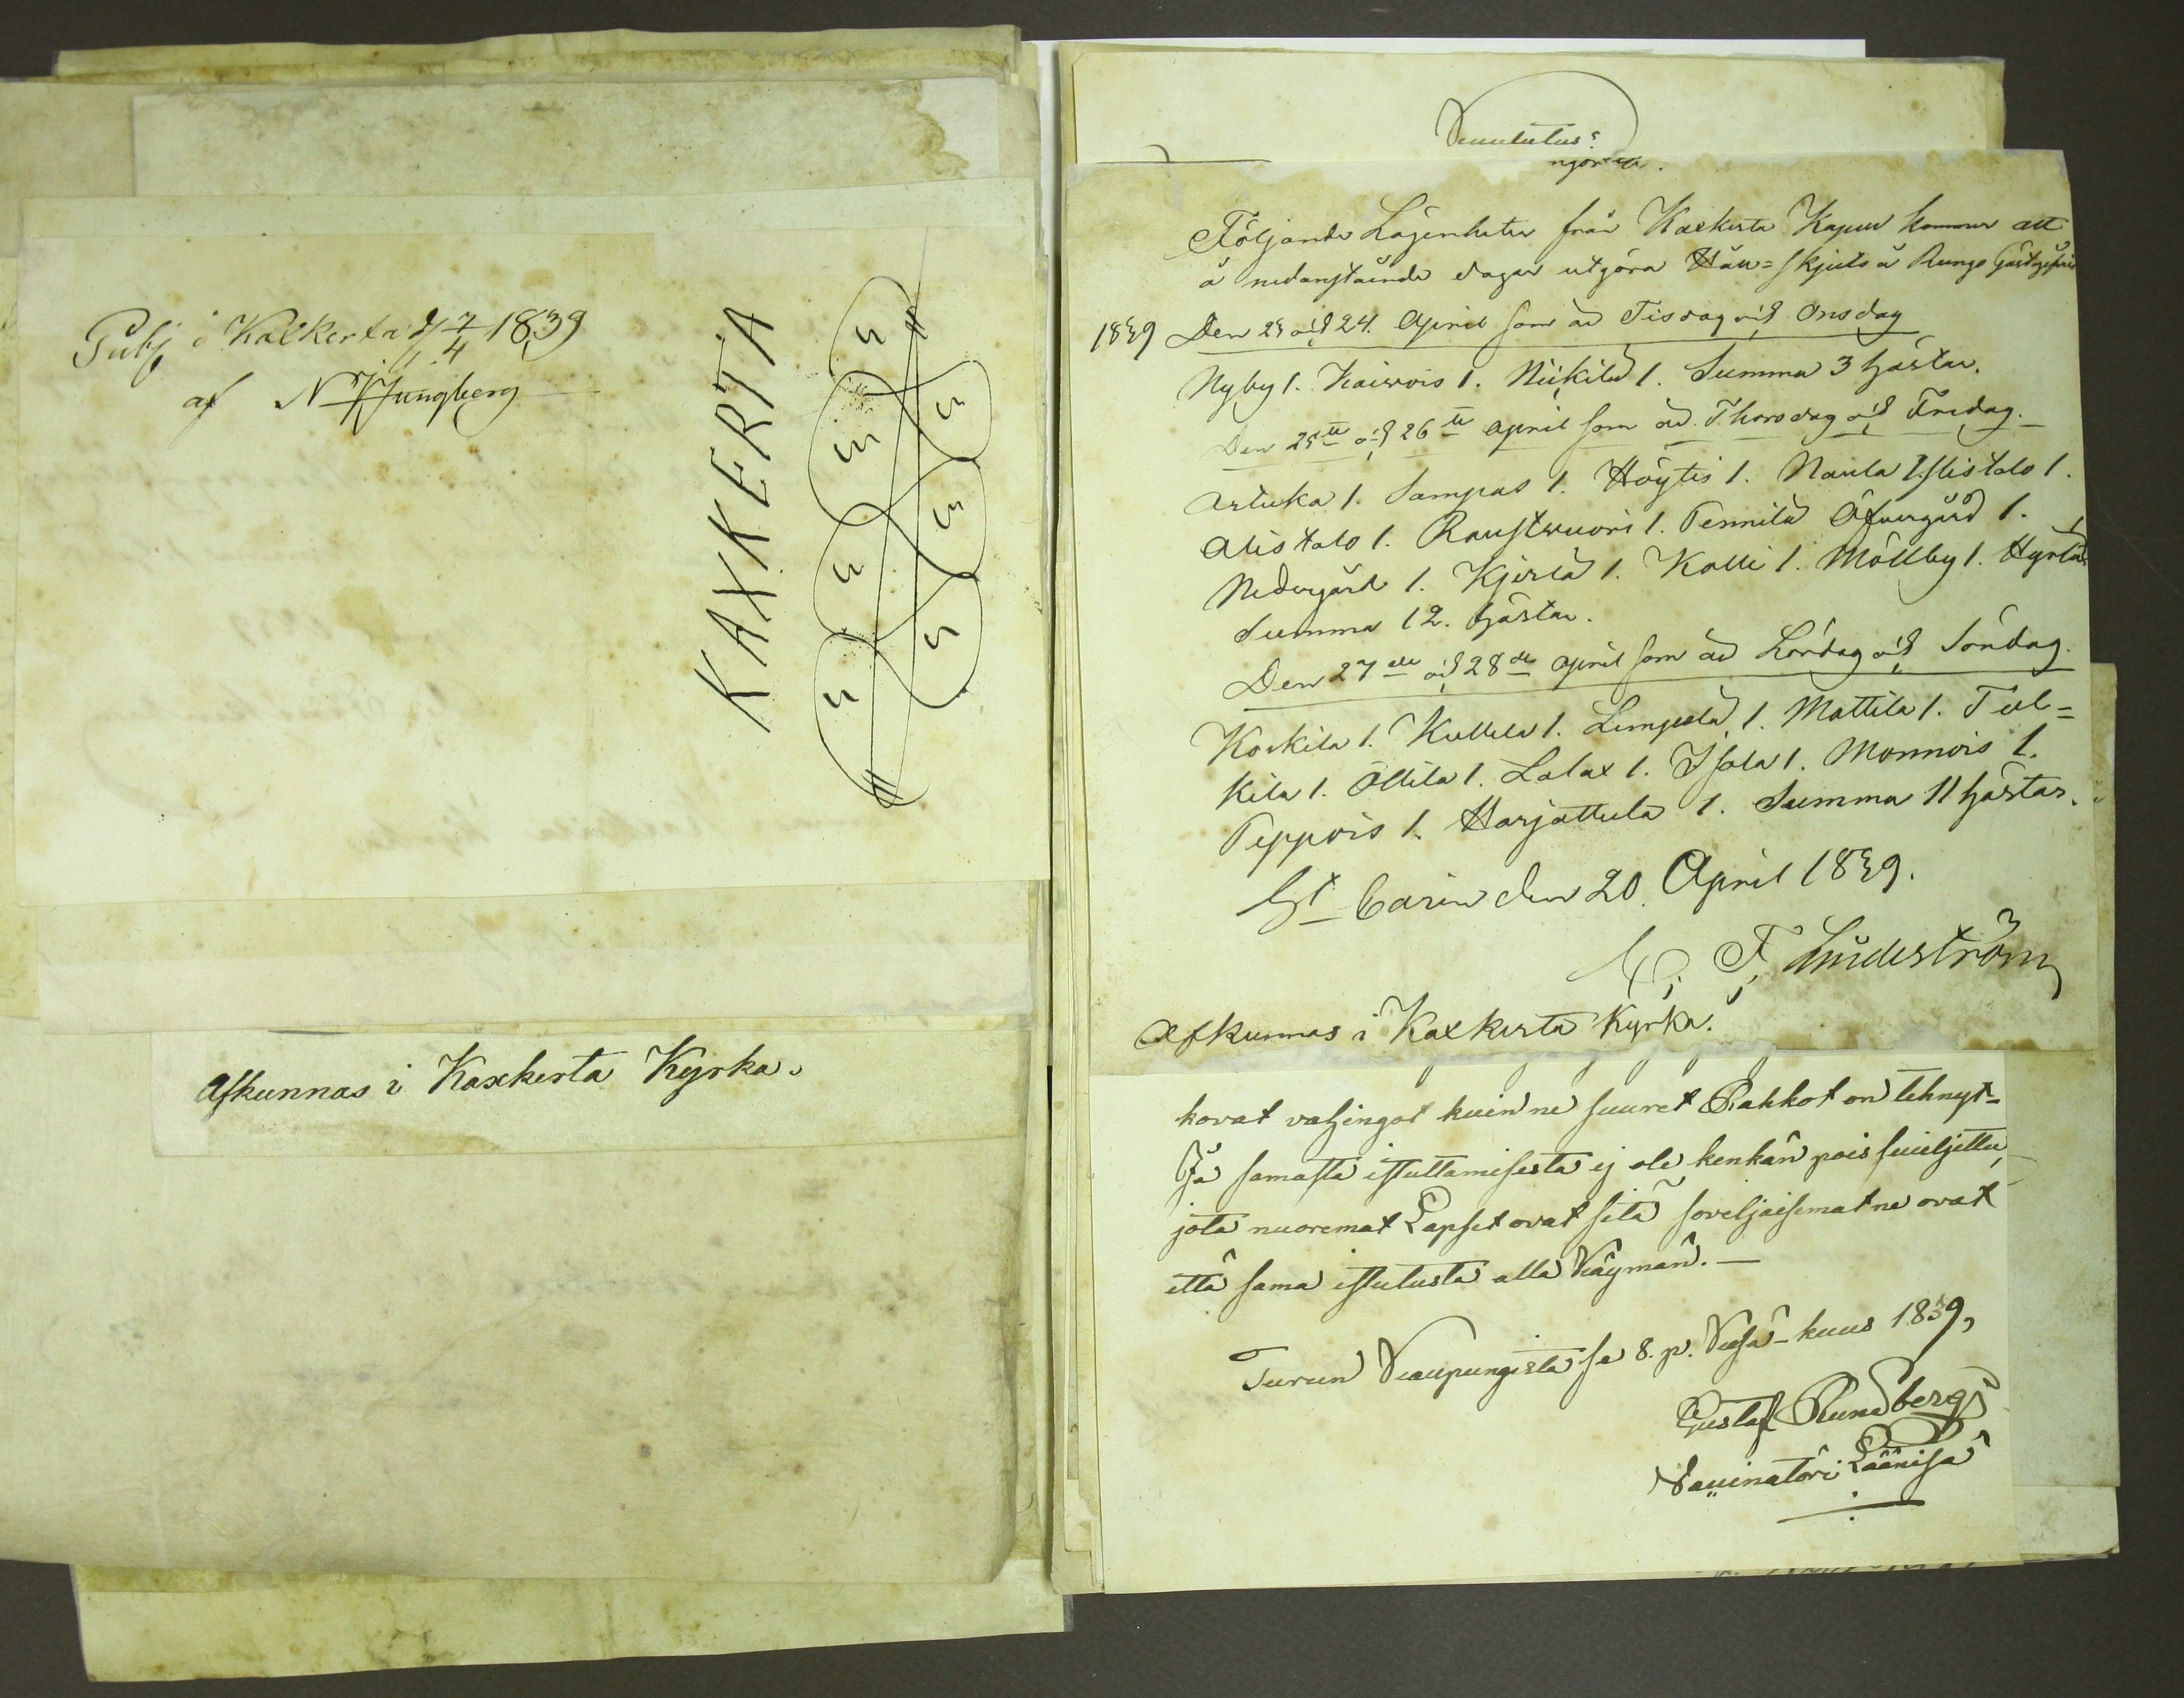 Publ i Kakkerta d 7/4 1839
af N Ljungberg
KAXKERTA
Afkunnas i Kaxkerta Kyrka.
Kuulutus:
Följande Lägenheter från Kaxkerta Kapell kommer att
å nedanstående dagar utgöra Håll=skjuts å Rungo Gästgifveri
1839 Den 23 och 24. April som är Tisdag och Onsdag
Nyby 1. Kaivois 1. Niikilä 1. Summa 3 hästar.
Den 25te och 26te April som är Thorsdag och Fredag.
Artuka 1. Sampas 1. Höytis 1. Naula 1. Ylistalo 1.
Alistalo 1. Raustvuori 1. Pennilä Öfvergård 1.
Nedergård 1. Kjerla 1. Kolli 1. Möllby 1. Hyrlä
Summa 12. hästar.
Den 27de och 28de April som är Lördag och Söndag.
Korkila 1. Kullila 1. Lempelä 1. Mattila 1. Tul=
kila 1. Ollila 1. Lalax 1. Isola 1. Monnois 1.
Peppois 1. Harjattula 1. Summa 11 hästar.
St Carin den 20. April 1839.
F. Lindeström
Afkunnas i Kaxkerta Kyrka.
kovat vahingot kuin ne suuret Rakkot on tehnyt-
Ja samasta istuttamisesta ej ole kenkän pois suieljettu,
jota nuoremat Lapset ovat sitä soveljaisemat ne ovat
että sama istutusta alla Käymän. —
Turun Kaupungista se 8. p. Kesä-kuus 1839,
Gustaf Rundberg
Vaccinatöri Läänisä